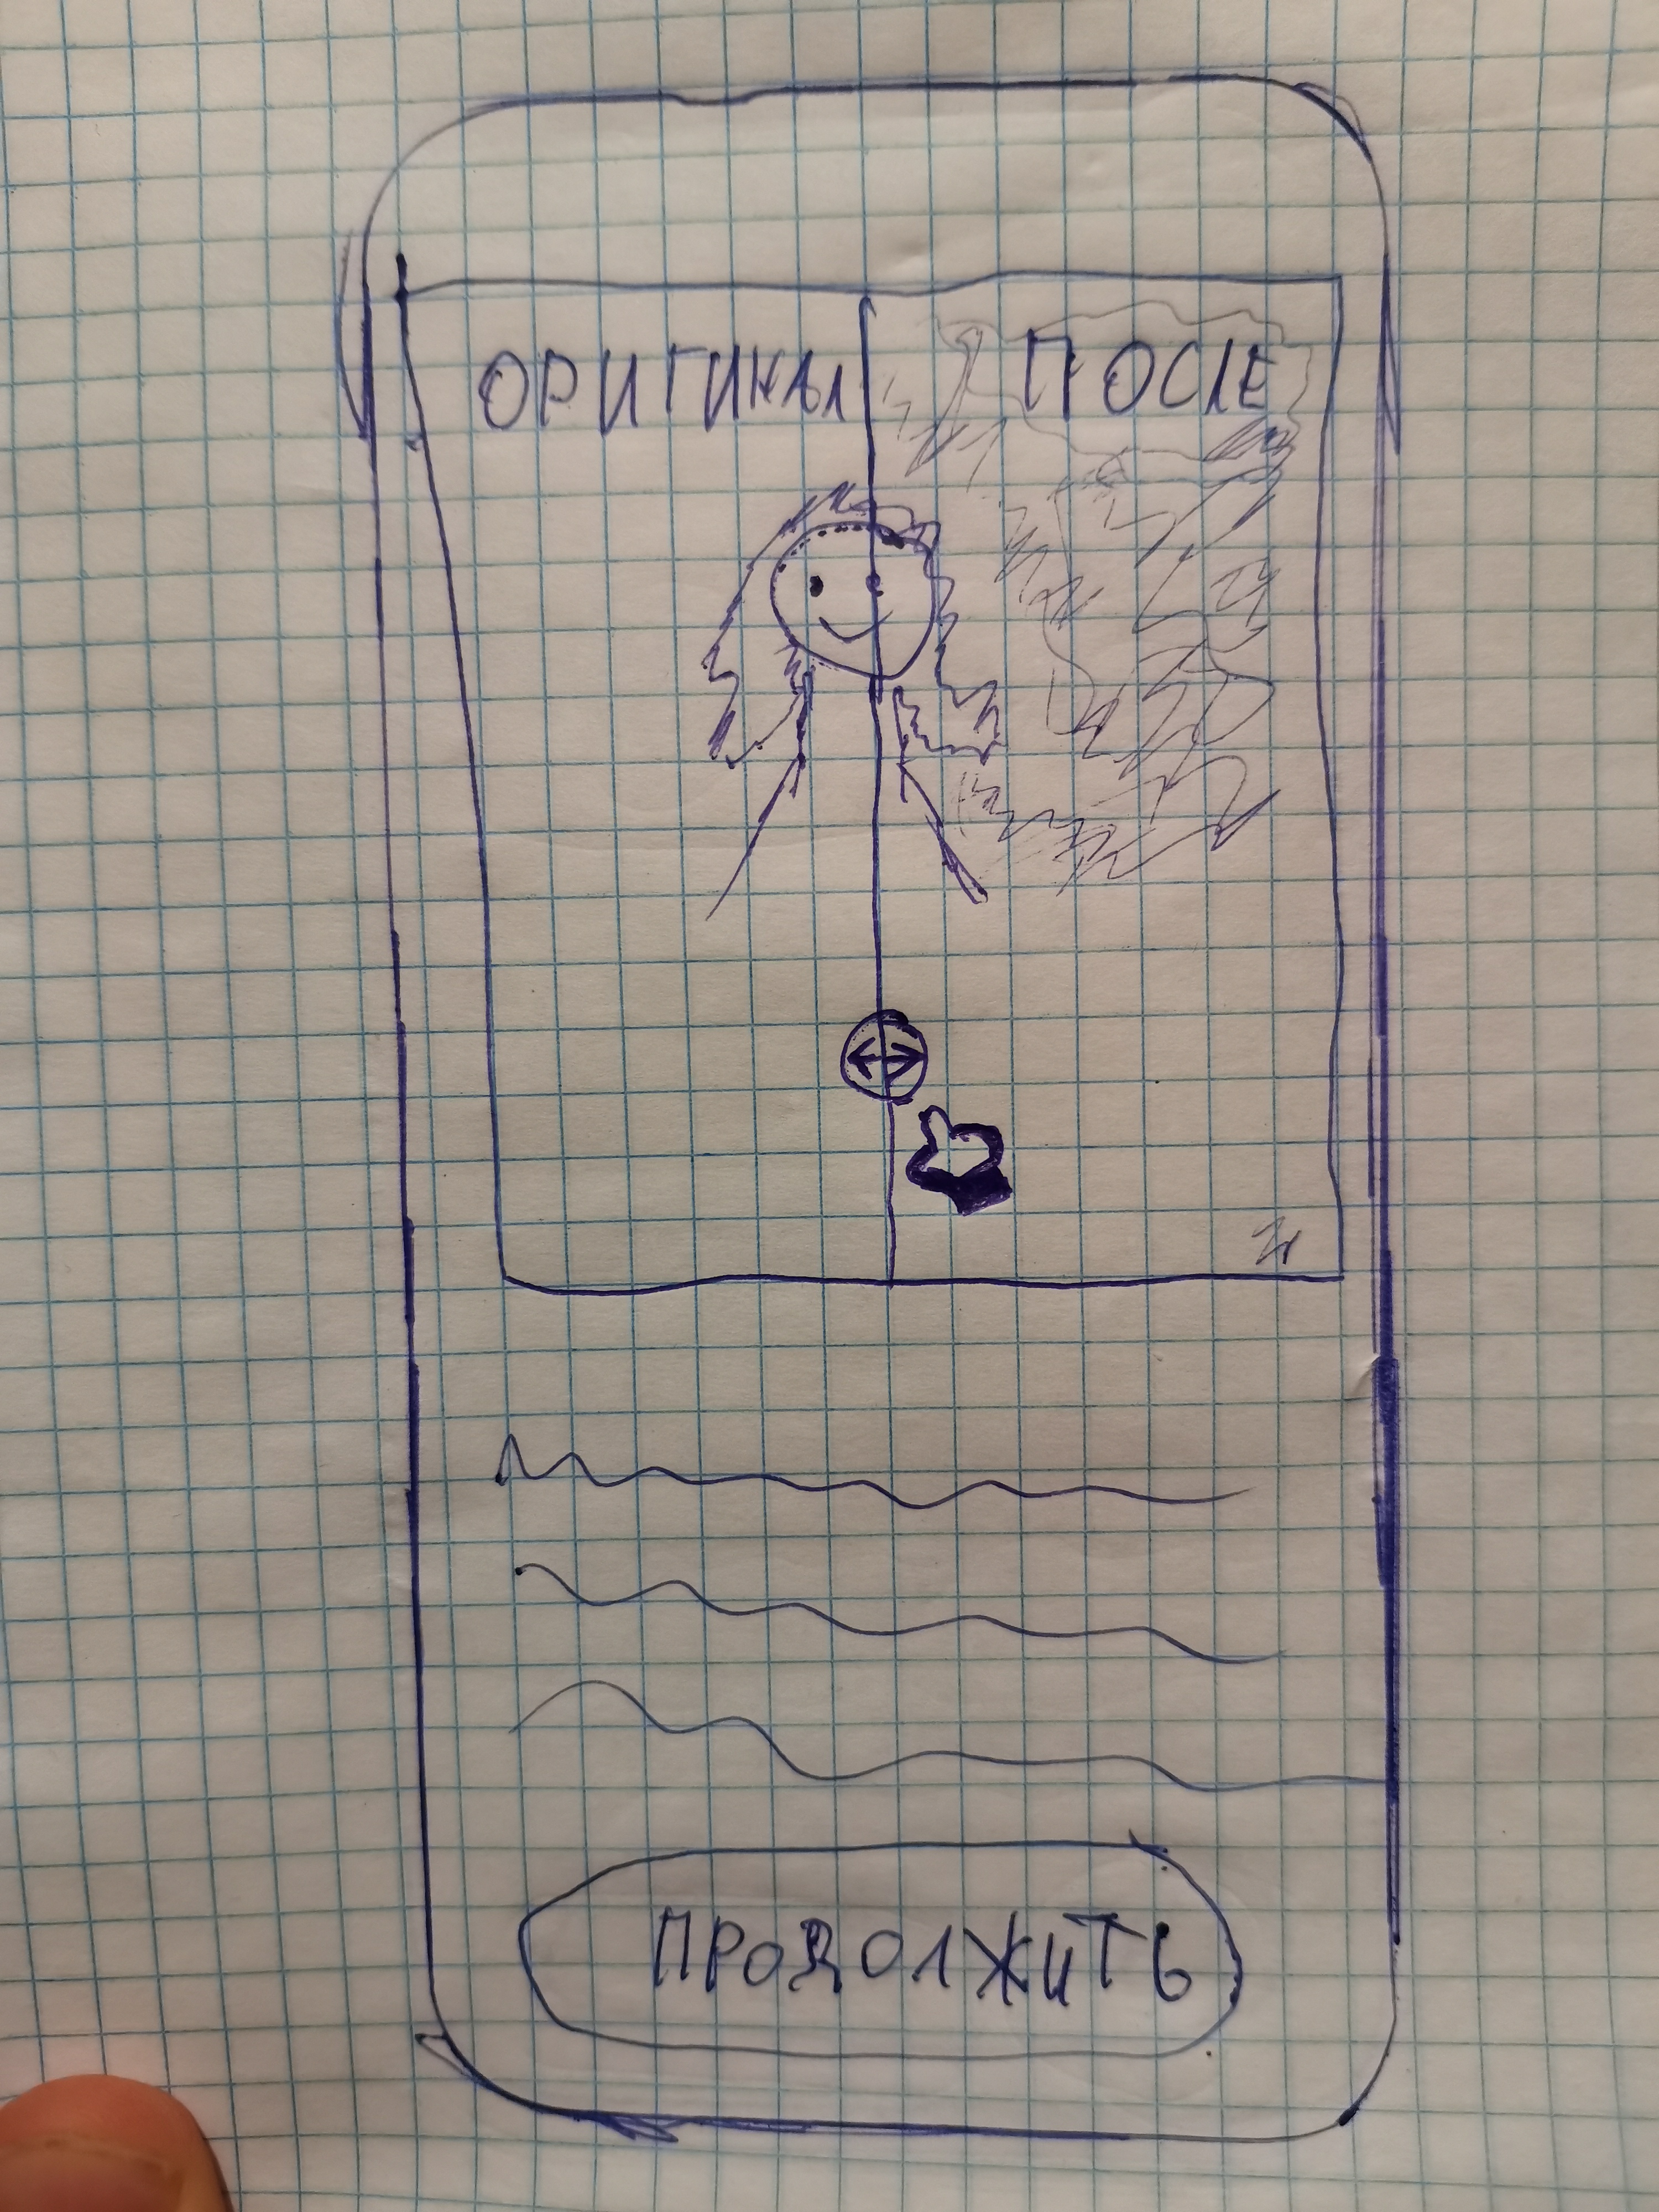 ОРИГИНАЛ ПОСЛЕ
ПРОДОЛЖИТЬ